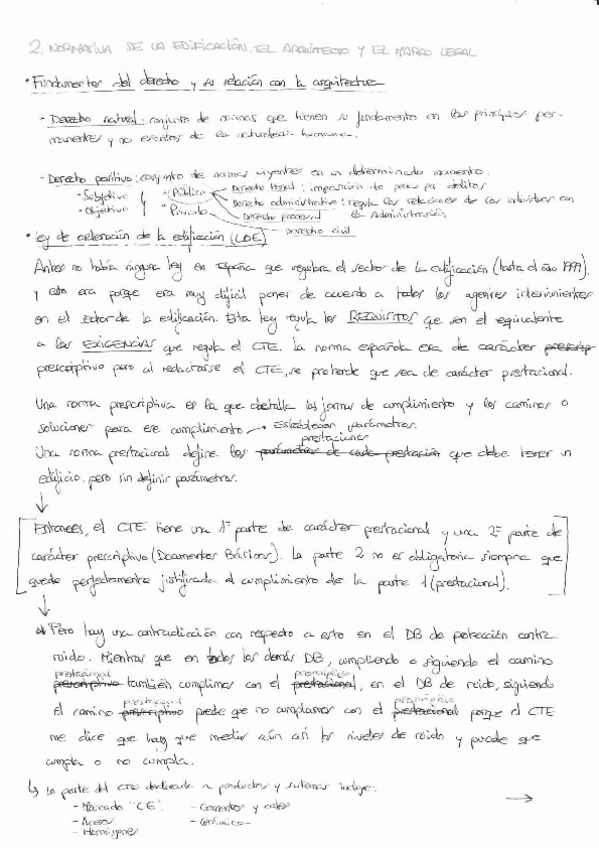 2. NORMATIVA DE LA EDIFICACIÓN. EL ARQUITECTO Y EL MARCO LEGAL
• Fundamentos del derecho y su relación con la arquitectura
- Derecho natural: conjunto de normas que tienen su fundamento en los principios per-
manentes y no escritos de la naturaleza humana.
- Derecho positivo: conjunto de normas vigentes en un determinado momento.
- Subjetivo
- Objetivo
- Público
- Privado
Derecho penal: imposición de penas por delitos
Derecho administrativo: regula las relaciones de los individuos con
la Administración
Derecho procesal
Derecho civil
• Ley de ordenación de la edificación (LOE)
Antes no había ninguna ley en España que regulara el sector de la edificación (hasta el año 1999)
y esto era porque era muy difícil poner de acuerdo a todos los agentes intervinientes
en el sector de la edificación. Esta ley regula los REQUISITOS que son el equivalente
a las EXIGENCIAS que regula el CTE. La norma española era de carácter prescrip
prescriptivo pero al redactarse el CTE, se pretende que sea de carácter prestacional.
Una norma prescriptiva es la que detalla las formas de cumplimiento y los caminos o
soluciones para ese cumplimiento → Establecen parámetros.
prestaciones
Una norma prestacional define las parámetros de cada prestación que debe tener un
edificio, pero sin definir parámetros.
↓
[Entonces, el CTE tiene una 1ª parte de carácter prestacional y una 2ª parte de
carácter prescriptivo (Documentos Básicos). La parte 2 no es obligatoria siempre que
quede perfectamente justificada el cumplimiento de la parte 1 (prestacional).]
↓
Pero hay una contradicción con respecto a esto en el DB de protección contra
ruido. Mientras que en todos los demás DB, cumpliendo o siguiendo el camino
prestacional prescriptivo
prescriptivo también cumplimos con el prestacional, en el DB de ruido, siguiendo
prestacional prescriptivo
el camino prescriptivo puede que no cumplamos con el prestacional porque el CTE
me dice que hay que medir aún así los niveles de ruido y puede que
cumpla o no cumpla.
↳ La parte del CTE dedicada a productos y sistemas incluye:
- Marcado "CE" - Cementos y cales
- Aceros - Cerámica
- Hormigones →